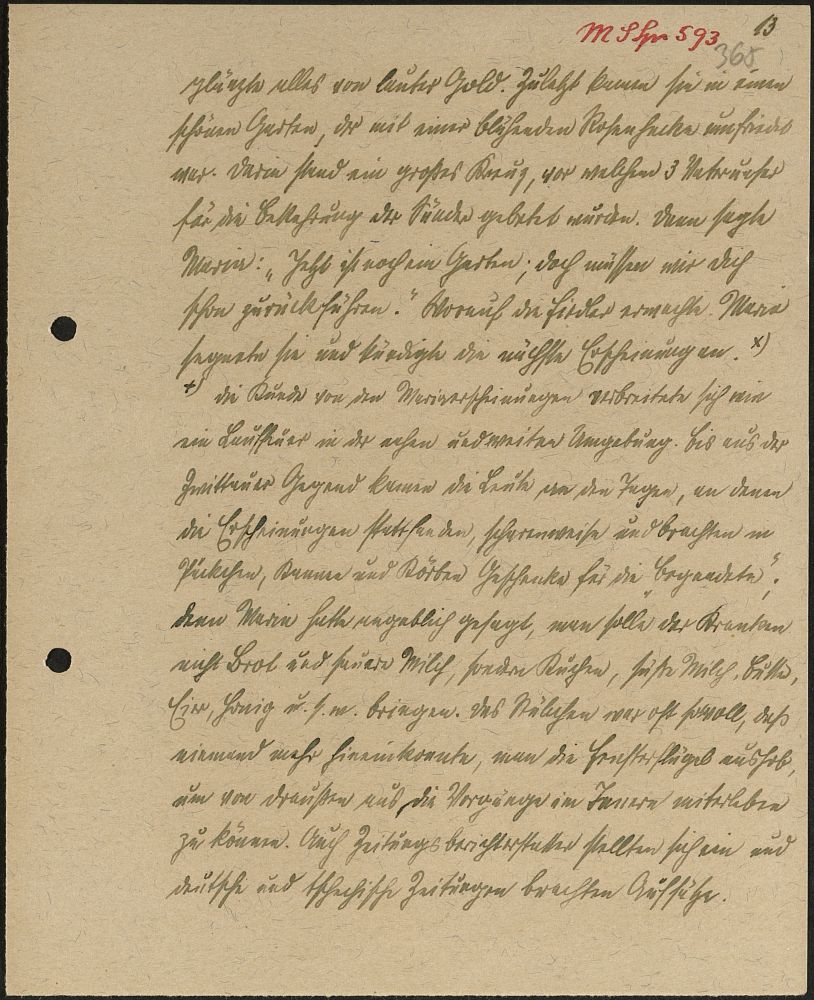 MShn 593
13
365
glänzte alles von lauter Gold. Zuletzt kamen sie in einen
schönen Garten, der mit einer blühenden Rosenhecke umfriedet
war. Darin stand ein großes Kreuz, vor welchem 3 Vaterunser
für die Bekehrung der Sünder gebetet wurden. Dann sagte
Maria: „Jetzt ist noch ein Garten; doch müssen wir dich
schon zurückführen.“ Worauf die Fiedler erwachte. Maria
segnete sie und kündigte die nächste Erscheinung an. x)
x) Die Kunde von den Marienerscheinungen verbreitete sich wie
ein Lauffeuer in der nahen und weiten Umgebung. Bis aus der
Zwittauer Gegend kamen die Leute an den Tagen, an denen
die Erscheinungen stattfanden, scharenweise und brachten in
Päckchen, Kannen und Körben Geschenke für die „Begnadete“.
Denn Maria hatte angeblich gesagt, man solle der Kranken
nicht Brot und sauere Milch, sondern Kuchen, süße Milch, Butter,
Eier, Honig u.s.w. bringen. Das Stübchen war oft so voll, daß
niemand mehr hineinkonnte, man die Fensterflügel aushob,
um von draußen aus die Vorgänge im Innern miterleben
zu können. Auch Zeitungsberichterstatter stellten sich ein und
deutsche und tschechische Zeitungen brachten Aufsätze.